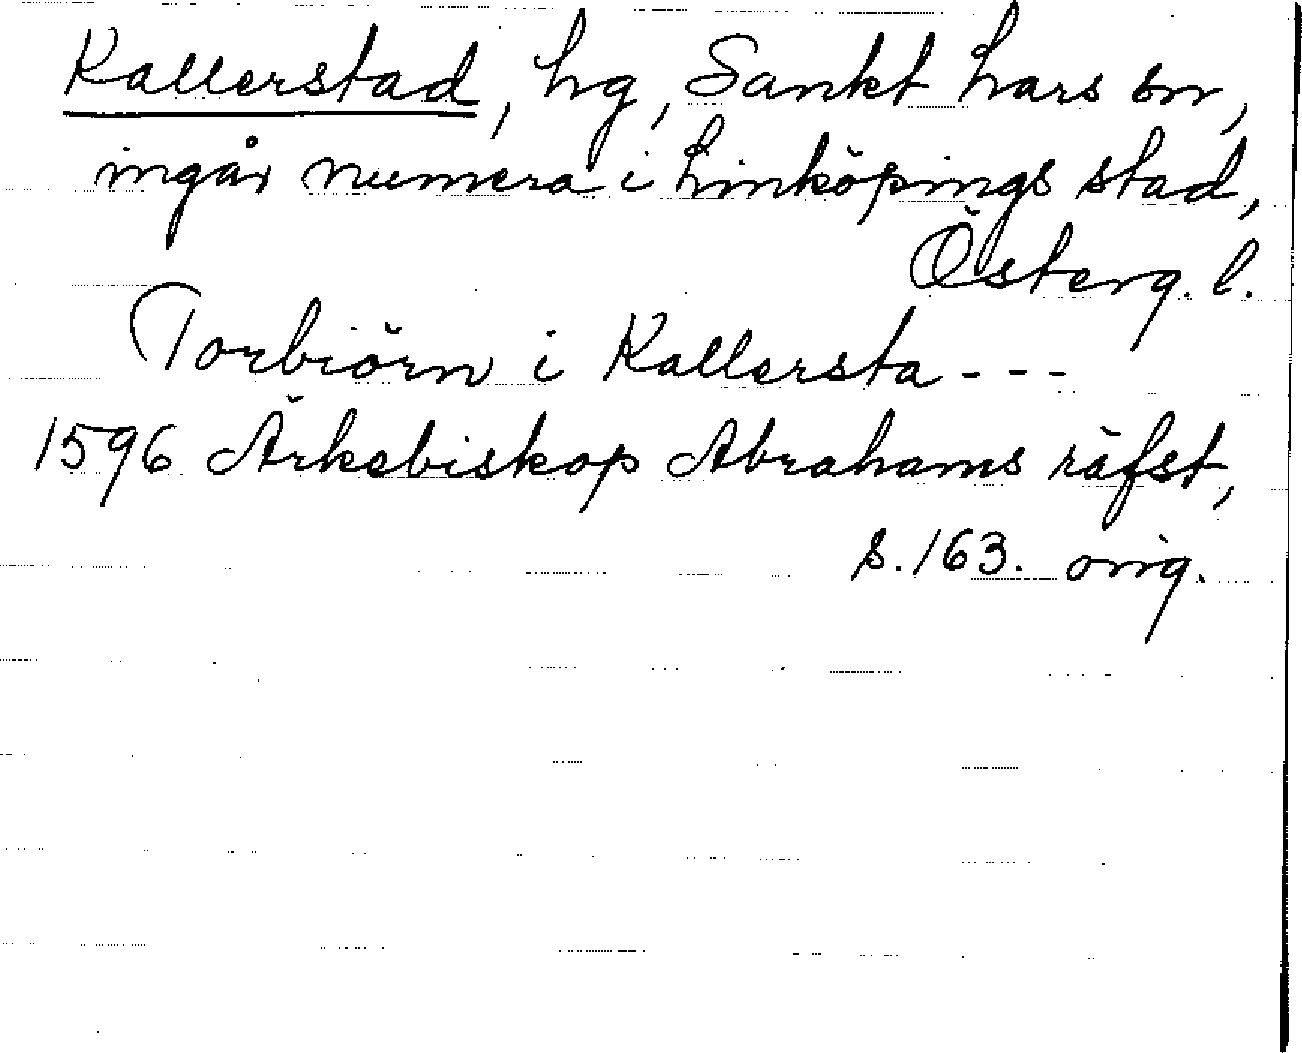 Kallerstad, hg, Sankt Lars sn,
ingår numera i Linköpings stad,
Österg. l.
Torbiörn i Kallersta - - -
1596 Ärkebiskop Abrahams räfst,
s. 163. orig.